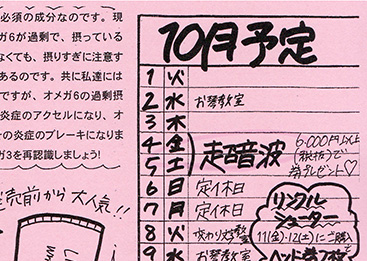 必須の成分なのです。現
ガ6が過剰で、摂っている
なくても、摂りすぎに注意す
あるのです。共に私達には
ですが、オメガ6の過剰摂
炎症のアクセルになり、オ
の炎症のブレーキになりま
ガ3を再認識しましょう!
売前から 大人気!!
10月予定
1 火
2 水 お琴教室
3 木
4 金
5 土
超音波
6,000円以上
(税抜)で
プレゼント♡
6 日 定休日
7 月 定休日
8 火 教室
9 水 お琴教室
リンクル
シューター
11(金)・12(土)にご購入